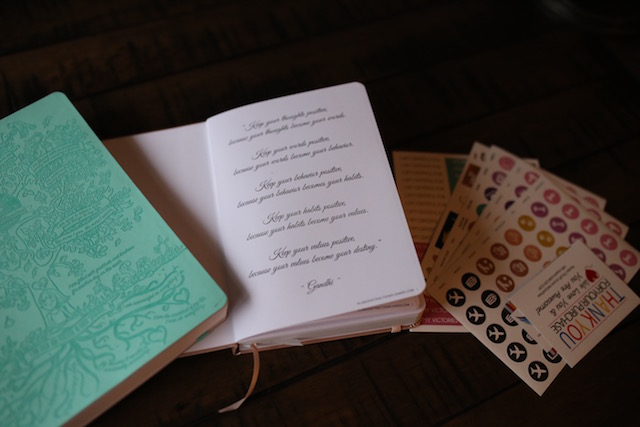 "Keep your thoughts positive,
because your thoughts become your words.
Keep your words positive,
because your words become your behavior.
Keep your behavior positive,
because your behavior becomes your habits.
Keep your habits positive,
because your habits become your values.
Keep your values positive,
because your values become your destiny."
~ Gandhi ~
THANK YOU
FOR YOUR PURCHASE
We Love You &
You Are Awesome!